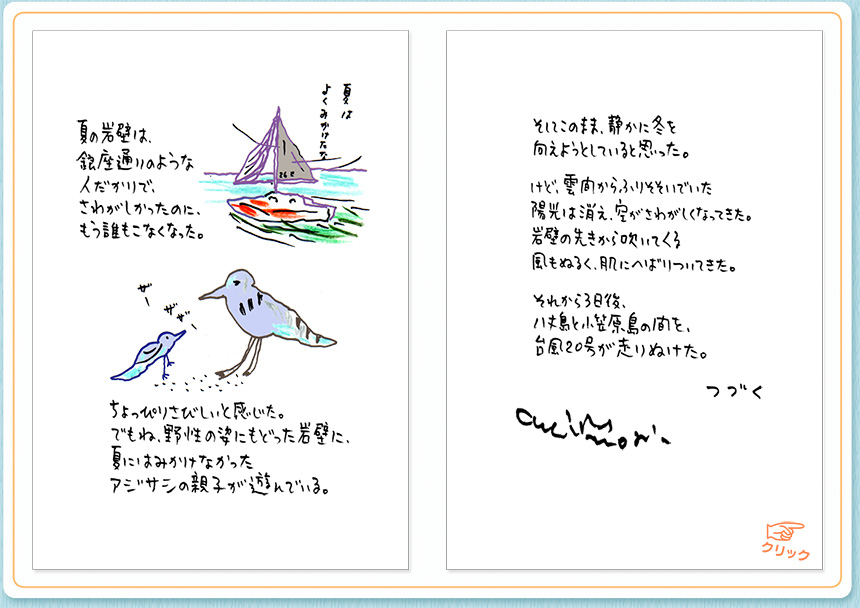 夏は
よくみかけたな
夏の岩壁は、
銀座通りのような
人だかりで、
さわがしかったのに、
もう誰もこなくなった。
ザー
ザザー
ちょっぴりさびしいと感じた。
でもね、野性の姿にもどった岩壁に、
夏にはみかけなかった
アジサシの親子が遊んでいる。
そしてこのまま、静かに冬を
向えようとしていると思った。
けど、雲間からふりそそいでいた
陽光は消え、空がさわがしくなってきた。
岩壁の先きから吹いてくる
風もぬるく、肌にへばりついてきた。
それから3日後、
八丈島と小笠原島の間を、
台風20号が走りぬけた。
つづく
クリック